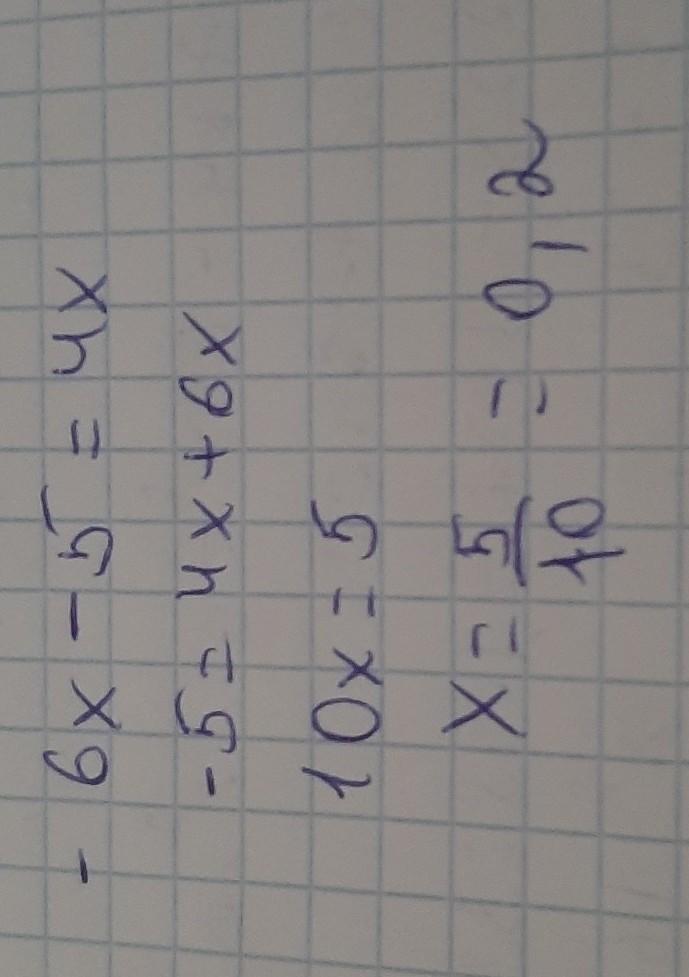 - 6x - 5 = 4x
-5 = 4x + 6x
10x = 5
x = 5/10 = 0,2